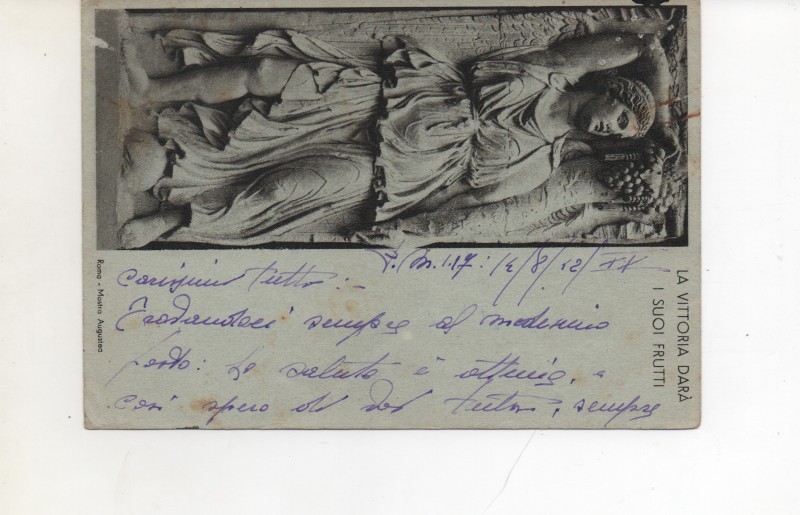 LA VITTORIA DARÀ
I SUOI FRUTTI
Roma - Mostra Augustea
P.M. 117: 12/8/42/XX
Carissimi tutti: -
Trovandoci sempre al medesimo
posto: La salute è ottima, e
così spero di voi tutti, sempre